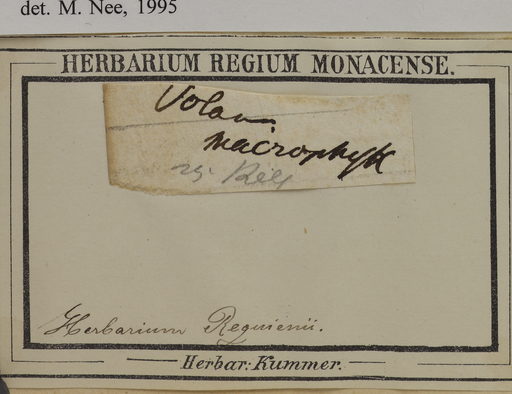 det. M. Nee, 1995
HERBARIUM REGIUM MONACENSE.
macrophyll
Herbarium Requienii.
Herbar: Kummer.